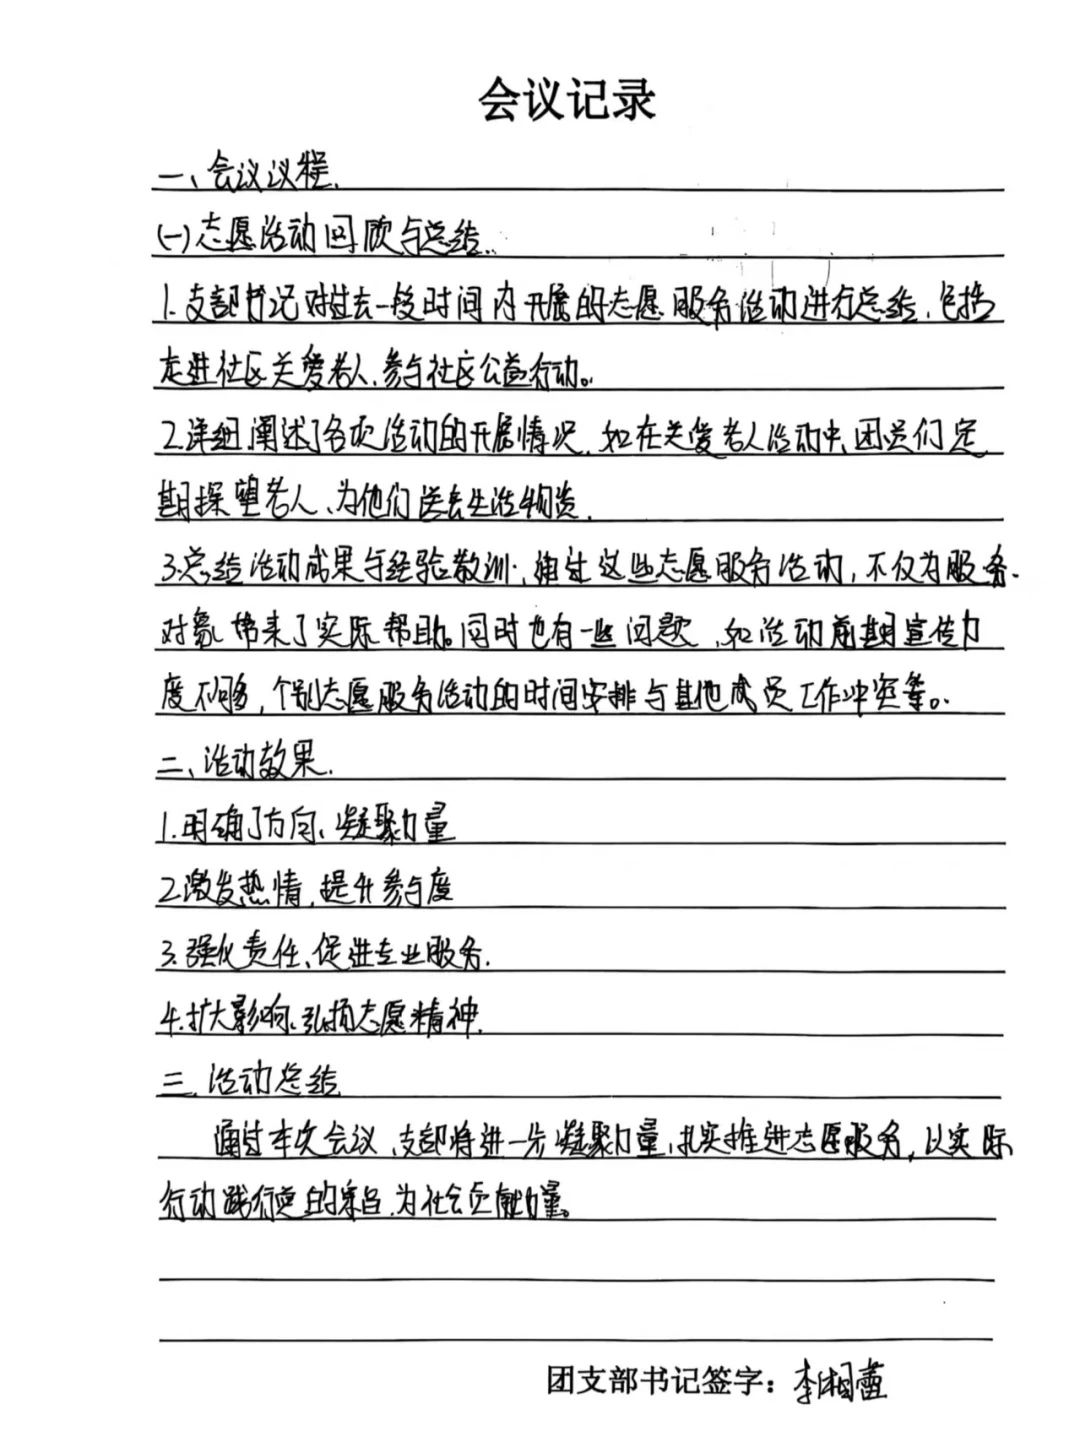 会议记录
一、会议议程.
(一)志愿活动回顾与总结.
1.支部书记对过去一段时间内开展的志愿服务活动进行总结,包括
走进社区关爱老人,参与社区公益行动。
2.详细阐述了各次活动的开展情况,如在关爱老人活动中,团员们定
期探望老人、为他们送去生活物资.
3.总结活动成果与经验教训,通过这些志愿服务活动,不仅为服务
对象带来了实际帮助。同时也有一些问题,如活动前期宣传力
度不够,个别志愿服务活动的时间安排与其他成员工作冲突等。
二、活动效果.
1.明确了方向、凝聚力量
2.激发热情,提升参与度
3.强化责任、促进专业服务.
4.扩大影响、弘扬志愿精神.
三.活动总结
通过本次会议,支部将进一步凝聚力量,扎实推进志愿服务,以实际
行动践行 的 ,为社会贡献力量。
团支部书记签字:李湘蕾